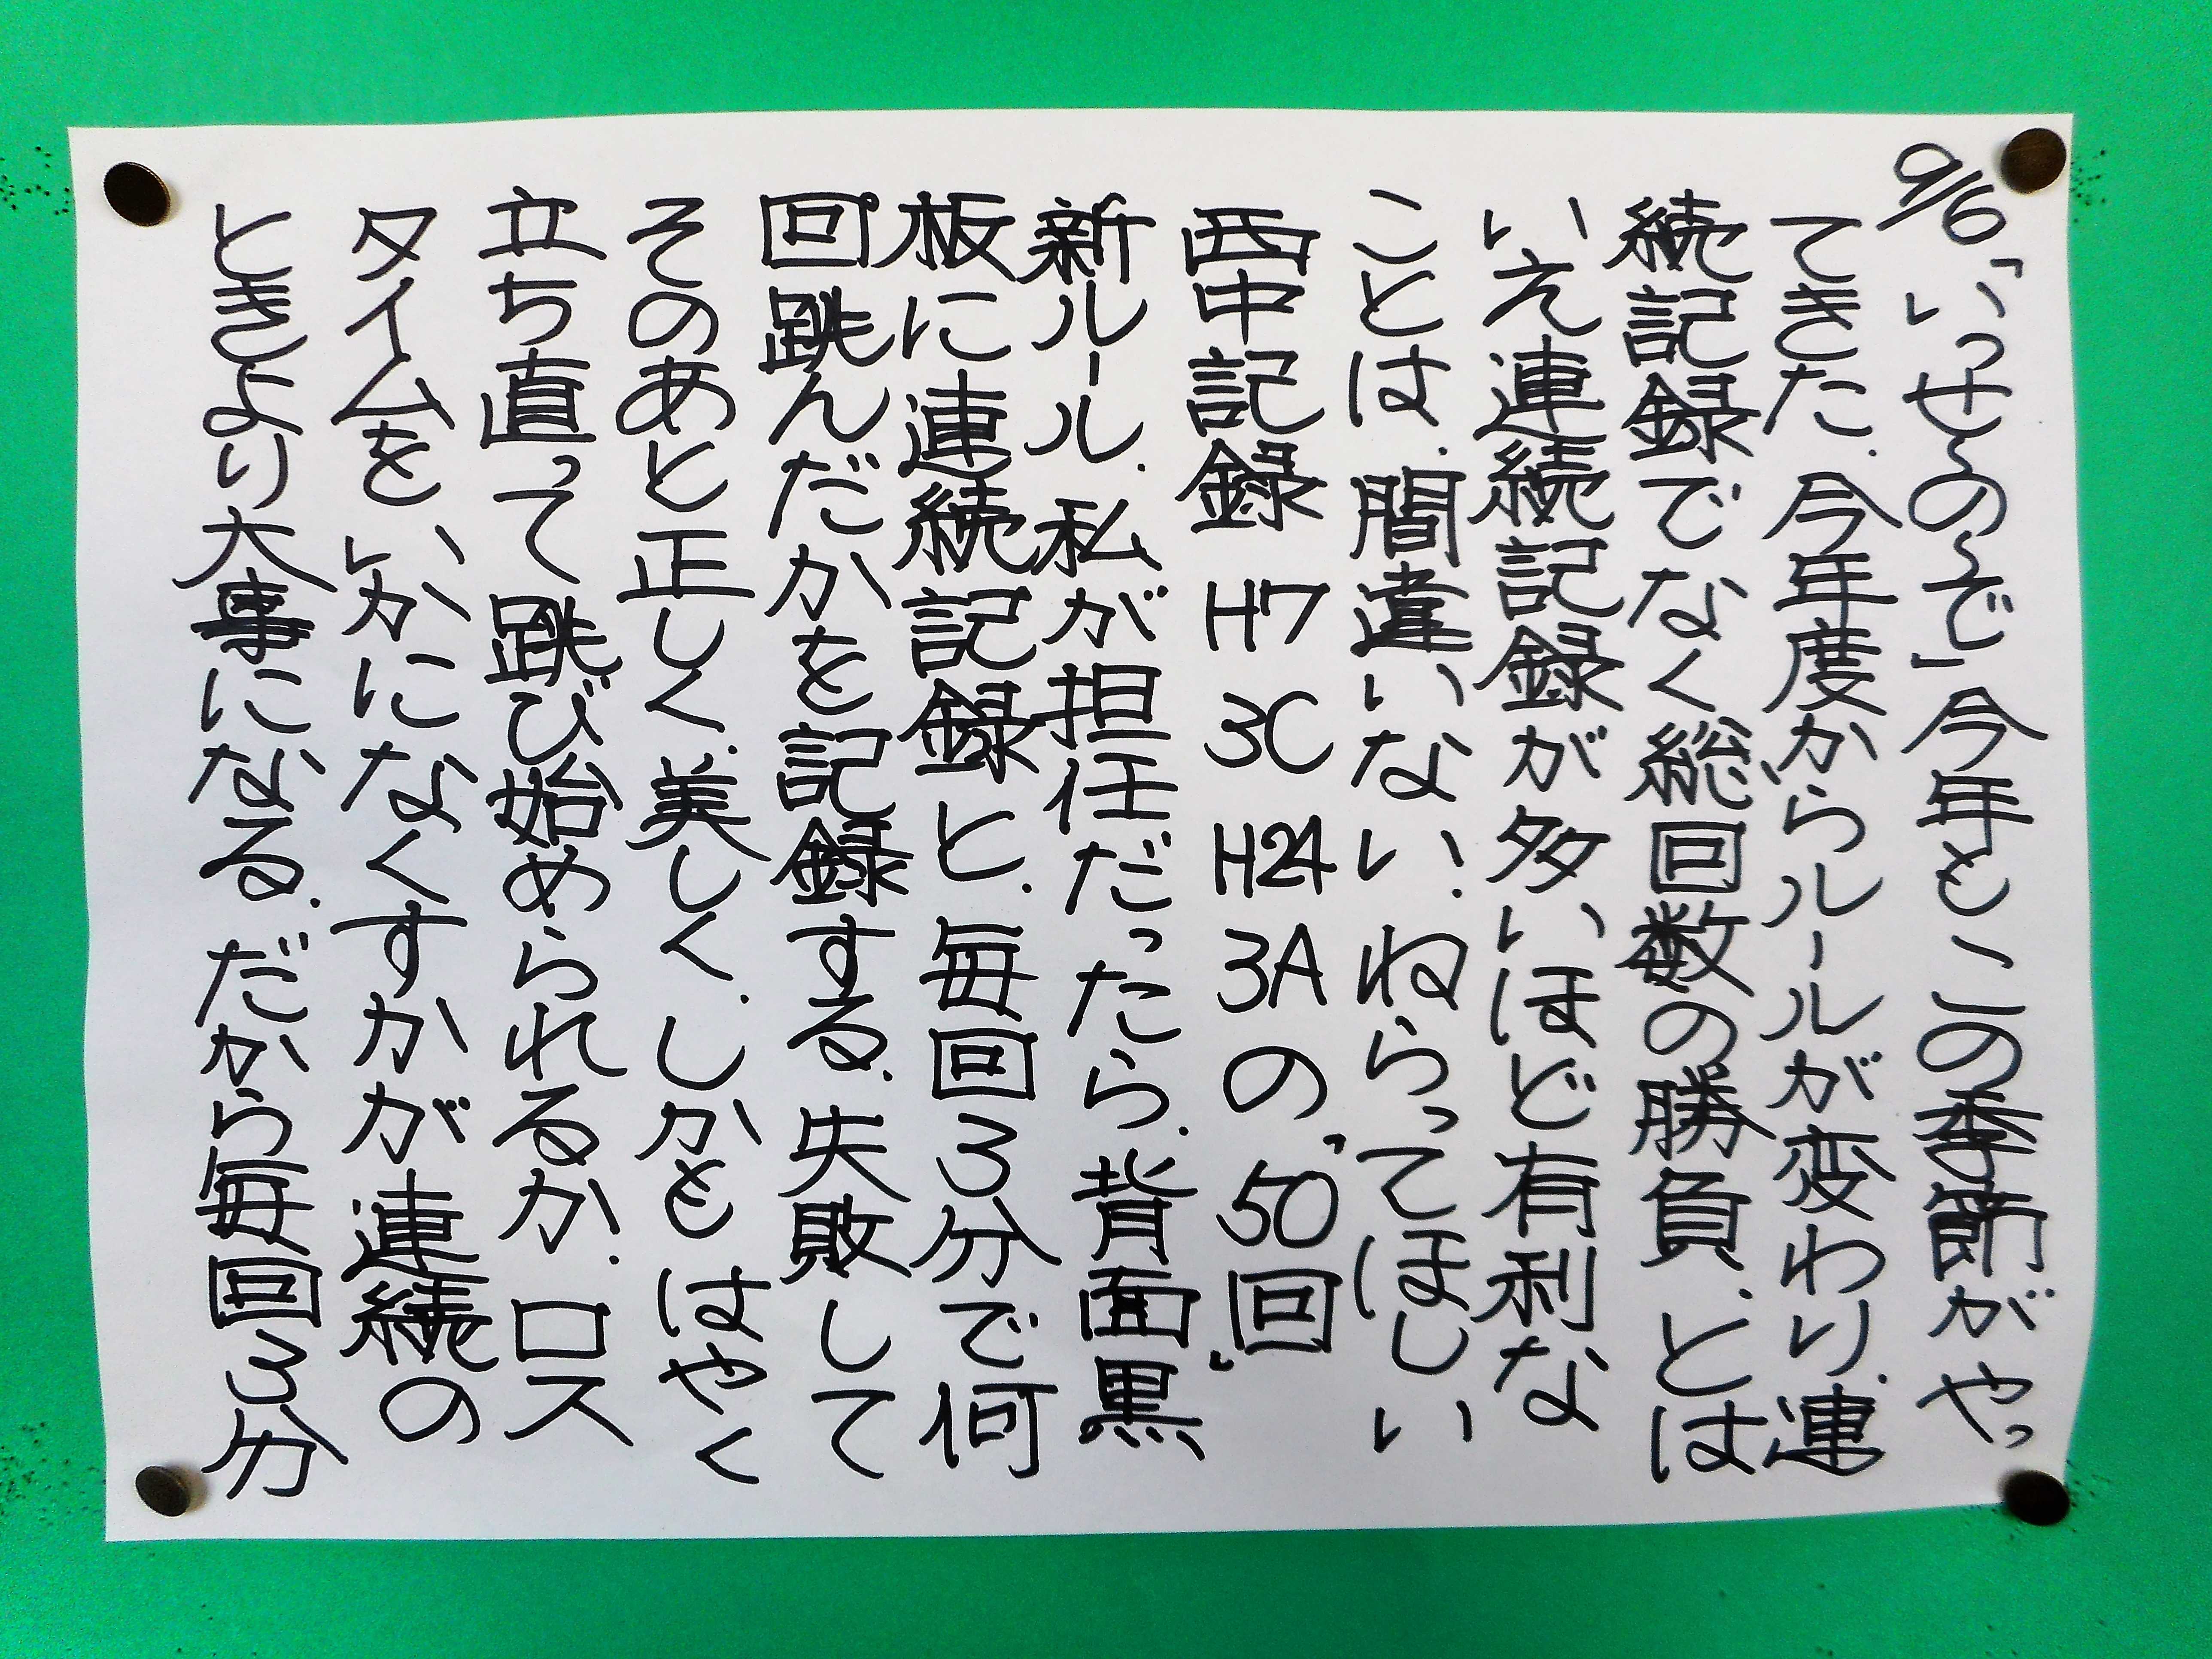 9/6「いっせ〜の〜で」今年もこの季節がやっ
てきた.今年度からルールが変わり.連
続記録でなく総回数の勝負.とは
いえ連続記録が多いほど有利な
ことは.間違いない!ねらってほしい
西中記録 H7 3C H24 3Aの"50回"
新ルール.私が担任だったら.背面黒
板に連続記録と.毎回3分で何
回跳んだかを記録する.失敗して
そのあと正しく.美しく.しかもはやく
立ち直って跳び始められるか!ロス
タイムをいかになくすかが連続の
ときより大事になる.だから毎回3分